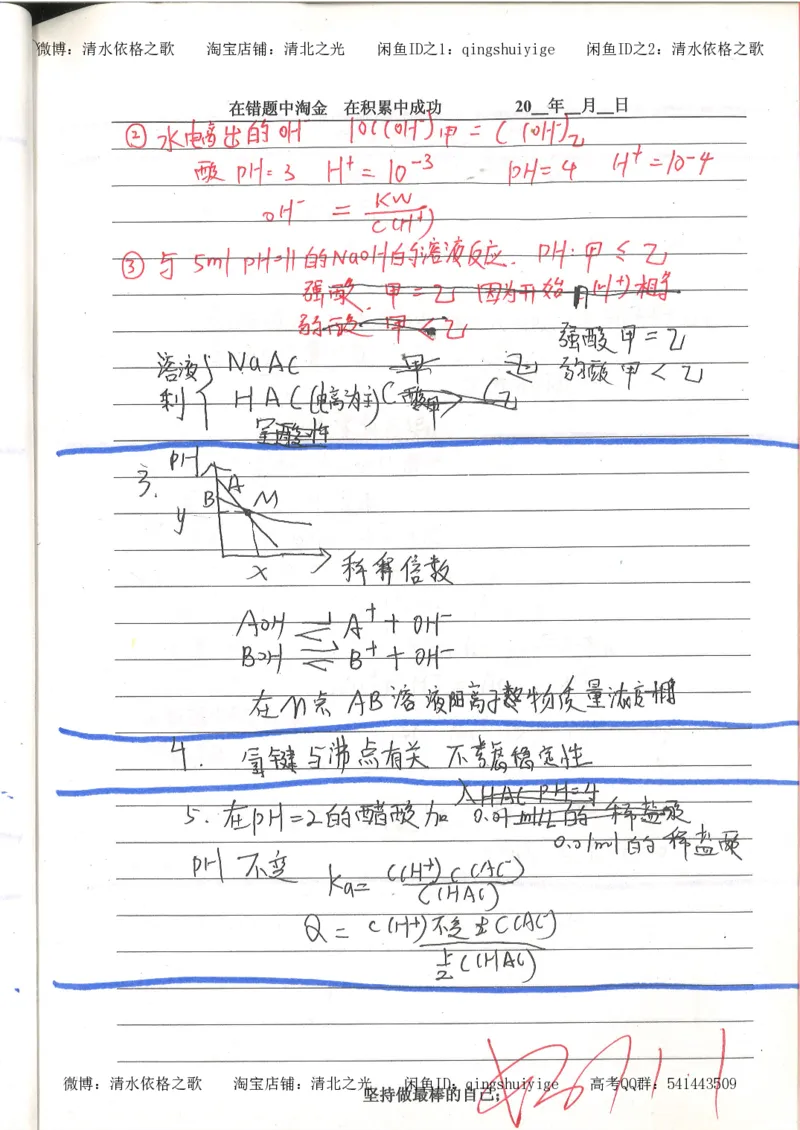 微博：清水依格之歌 淘宝店铺：清北之光 闲鱼ID之1：qingshuiyige 闲鱼ID之2：清水依格之歌
在错题中淘金 在积累中成功 20__年__月__日
② 水电离出的OH⁻ 10C(OH⁻)甲 = C(OH⁻)乙
酸 pH=3 H⁺=10⁻³ pH=4 H⁺=10⁻⁴
OH⁻ = KW/C(H⁺)
③ 与5ml pH=11的NaOH的溶液反应. PH:甲≤乙
强酸. 甲=乙 因为开始 (H⁺)相等
弱酸 甲<乙
强酸甲=乙
溶液 { NaAC 甲 乙 弱酸甲<乙
剩 { HAC(电离为主) C酸甲 > C乙
呈酸性
PH
3. B A M
y
x 稀释倍数
AOH ⇌ A⁺ + OH⁻
BOH ⇌ B⁺ + OH⁻
在M点 AB溶液阳离子 物质量浓度相
4. 氢键与沸点有关 不考虑稳定性
入HAC PH=4
5. 在pH=2的醋酸加 0.01 ml/L的稀盐酸
0.01ml的稀盐酸
PH不变 Ka= C(H⁺)C(AC⁻)/C(HAC)
Q = C(H⁺)不变 ½C(AC⁻)/½C(HAC)
微博：清水依格之歌 淘宝店铺：清北之光 闲鱼ID：qingshuiyige 高考QQ群：541443509
坚持做最棒的自己；